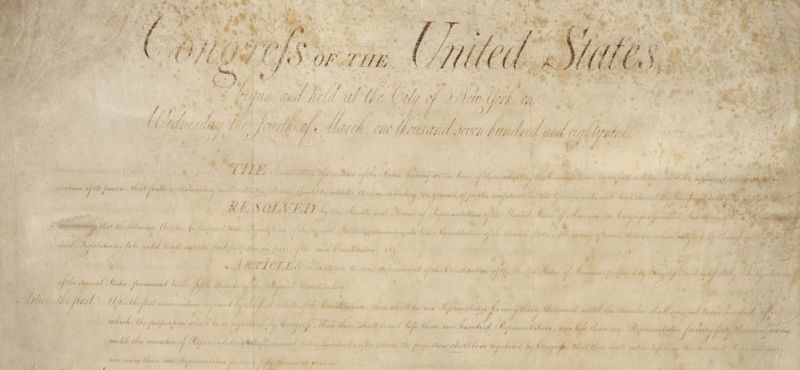 Congreſs OF THE United States,
begun and held at the City of New York, on
Wednesday the fourth of March, one thousand seven hundred and eighty nine.
THE Conventions of a number of the States, having at the time of their adopting the Constitution, expressed a desire, in order to prevent misconstruction
or abuse of its powers, that further declaratory and restrictive clauses should be added: And as extending the ground of public confidence in the Government, will best ensure the beneficent ends
RESOLVED by the Senate and House of Representatives of the United States of America, in Congress assembled, two thirds of
concurring, that the following Articles be proposed to the Legislatures of the several States, as amendments to the Constitution of the United States, all, or any of which Articles, when ratified by three fourths
said Legislatures, to be valid to all intents and purposes, as part of the said Constitution; viz.
ARTICLES in addition to, and Amendment of the Constitution of the United States of America, proposed by Congress, and ratified by the Legislatures
of the several States, pursuant to the fifth Article of the original Constitution.
Article the first. After the first enumeration required by the first Article of the Constitution, there shall be one Representative for every thirty thousand, until the number shall amount to one hundred, after
which, the proportion shall be so regulated by Congress, that there shall be not less than one hundred Representatives, nor less than one Representative for every forty thousand persons,
until the number of Representatives shall amount to two hundred, after which, the proportion shall be so regulated by Congress, that there shall not be less than two hundred Representatives,
nor more than one Representative for every fifty thousand persons.